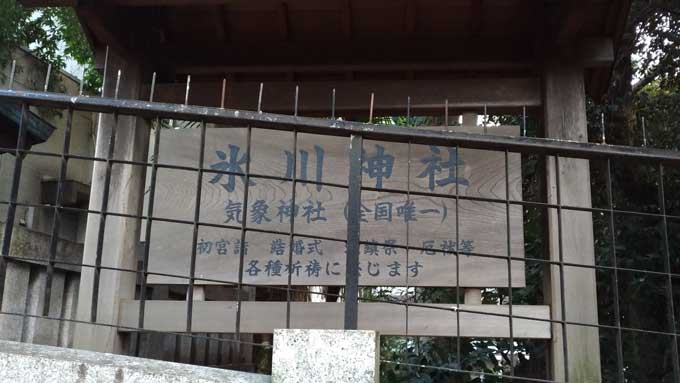 氷川神社
気象神社（全国唯一）
初宮詣 結婚式 地鎮祭 厄祓等
各種祈祷に応じます